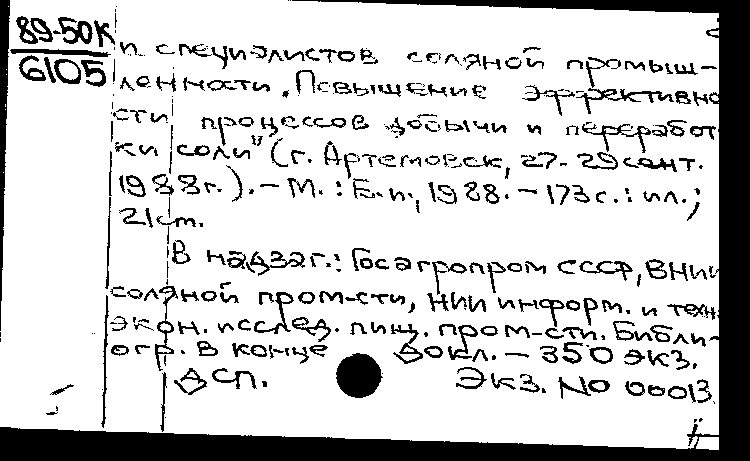 89-50К
6105
и специалистов соляной промыш-
ленности. Повышение эффективно
сти процессов добычи и переработ
ки соли" (г. Артемовск, 27-29 сент.
1988г.). – М. : Б.и., 1988. – 173с. : ил.;
21см.
В надзаг.: Госагропром СССР, ВНИИ
соляной пром-сти, НИИ информ. и техн.
экон. исслед. пищ. пром-сти. Библи-
огр. в конце докл. – 350 экз.
ДСП. Экз. No 00013